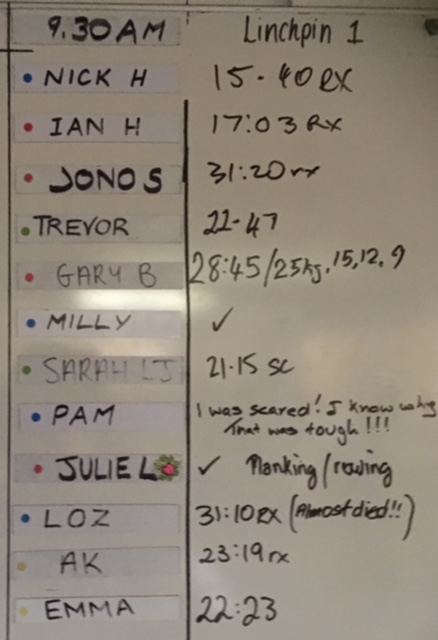 9.30AM Linchpin 1
NICK H 15-40 RX
IAN H 17:03 Rx
JONO S 31:20 rx
TREVOR 22-47
GARY B 28:45/25kg, 15, 12, 9
MILLY ✓
SARAH LJ 21.15 SC
PAM I was scared! I know why
That was tough!!!
JULIE L ✓ Planking/rowing
LOZ 31:10 RX (Almost died!!)
AK 23:19 rx
EMMA 22:23